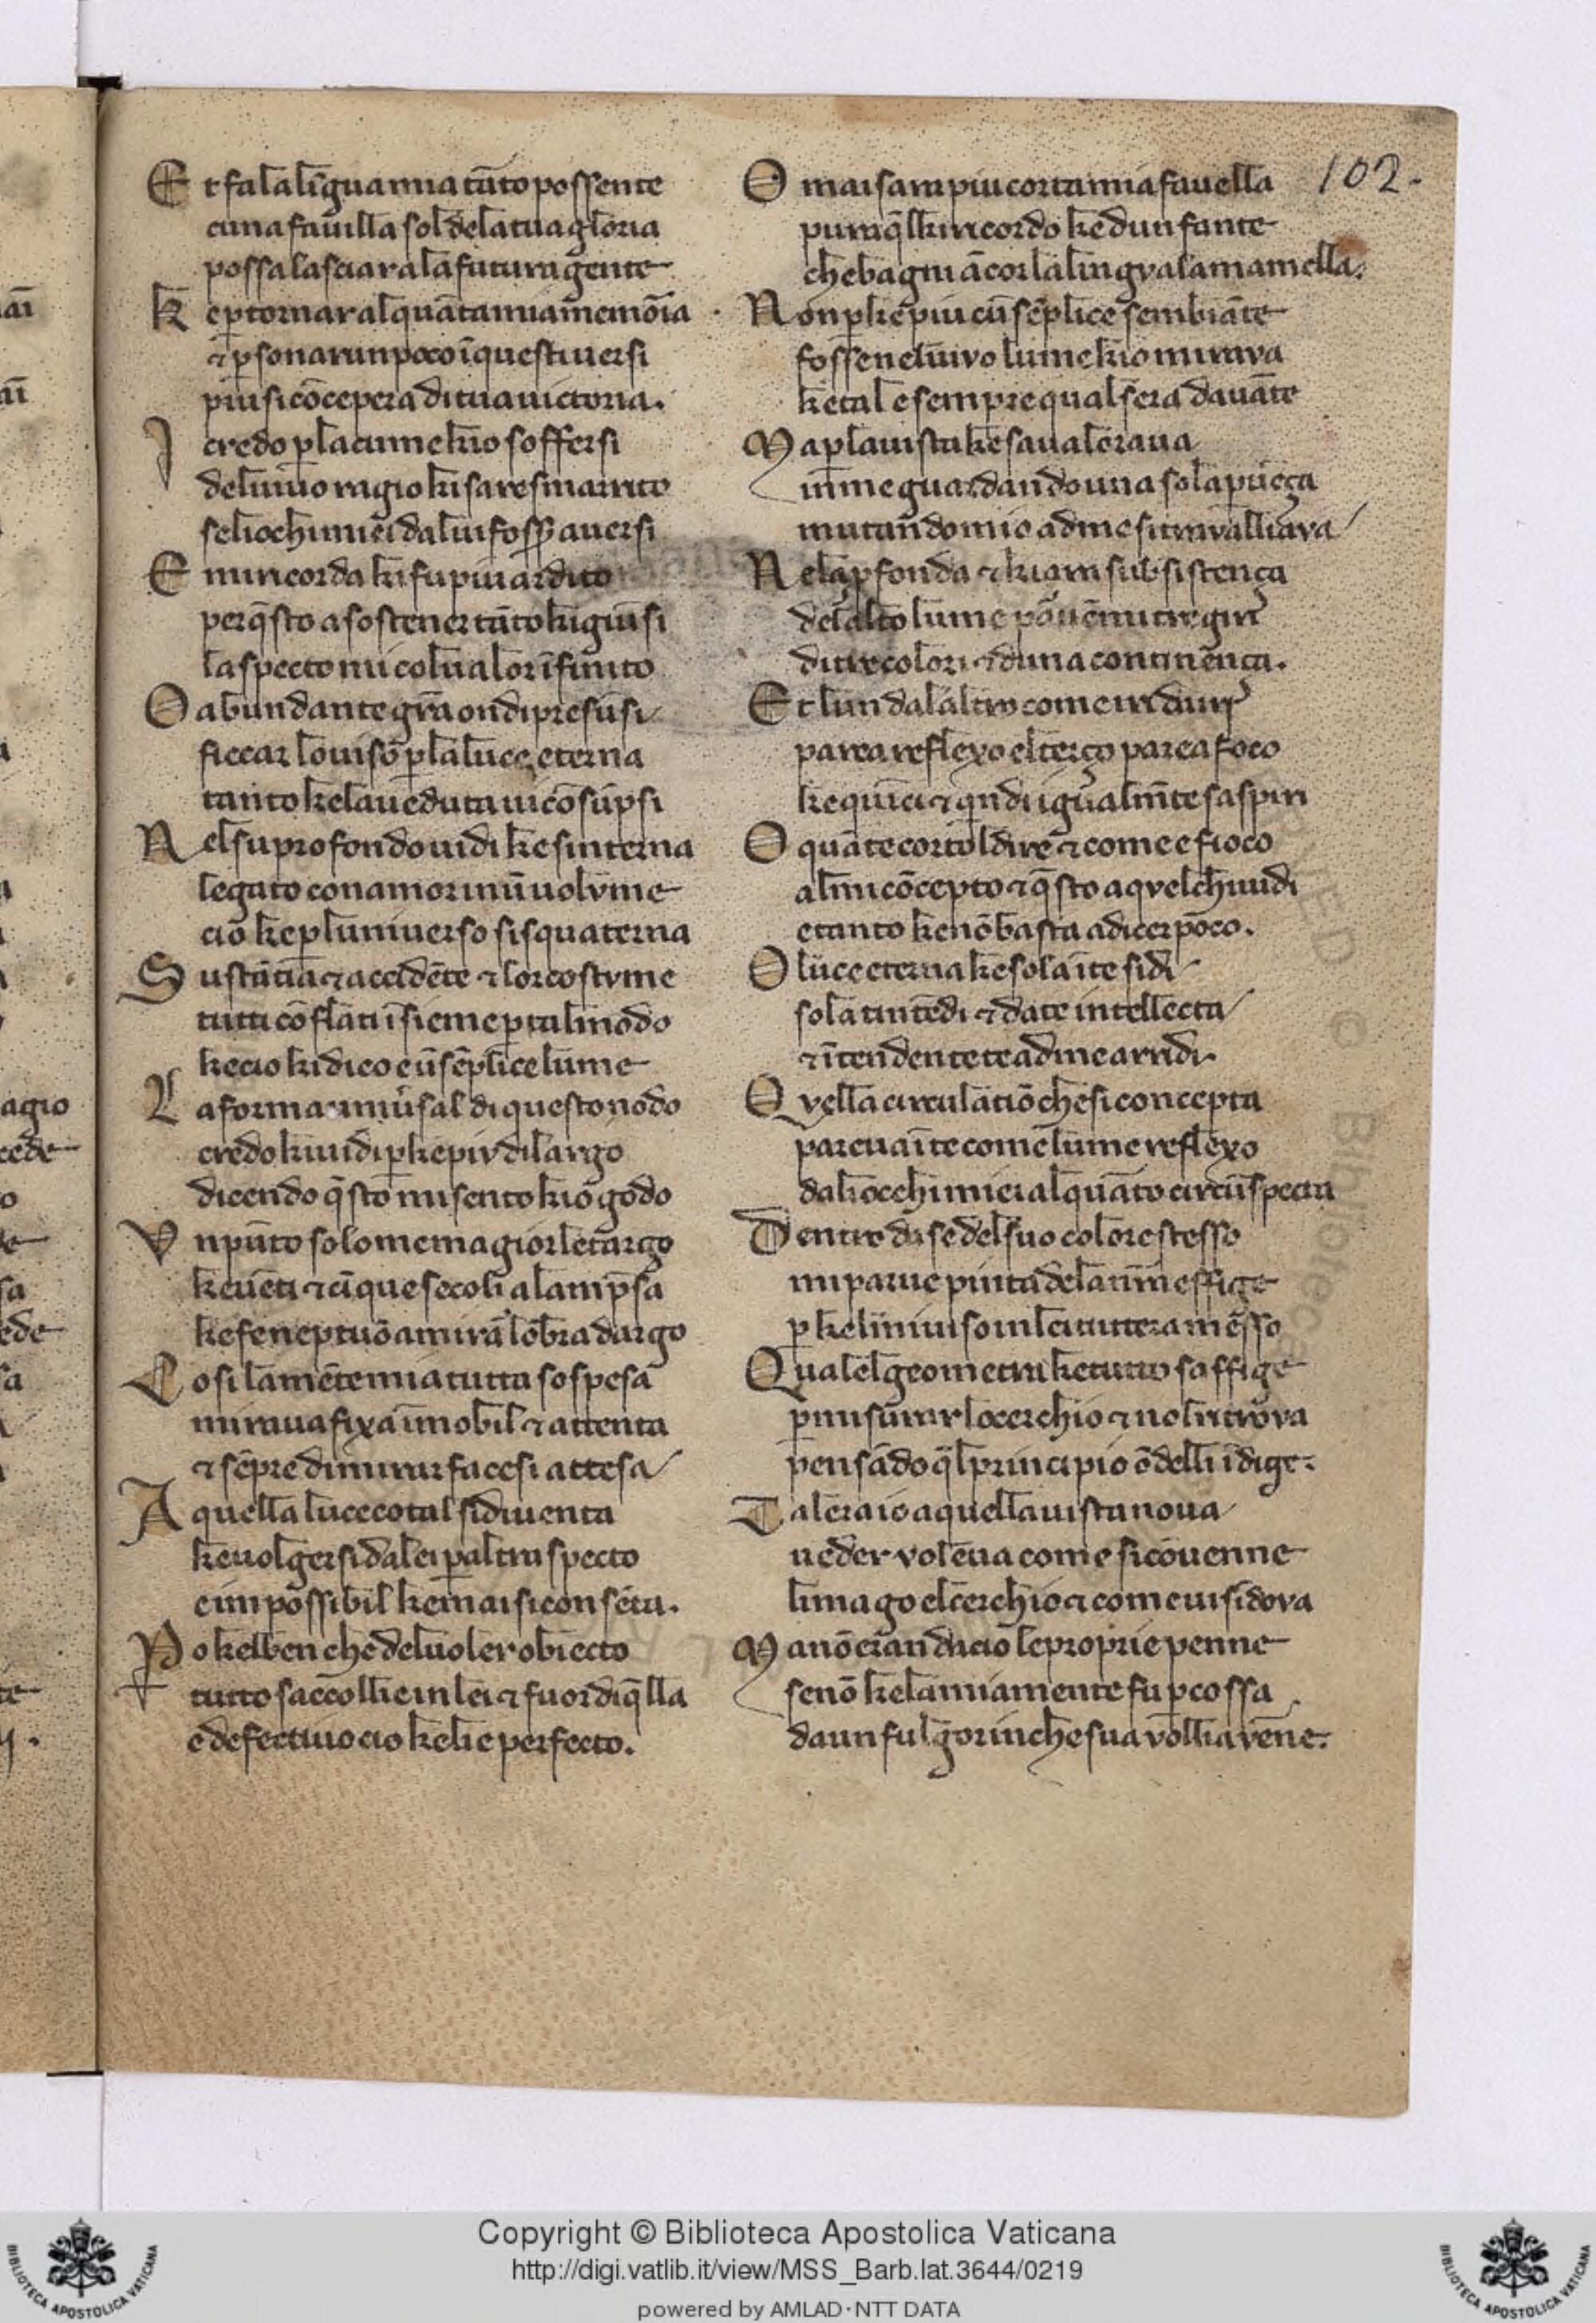 Et fa la līgua mia tāto possente
cuna favilla sol dela tua gloria
possa lasciar ala futura gente
K ep tornar alquāta mia memōia
⁊ p sonar un poco ī questi versi
piu si cōcepera di tua victoria.
I credo p lacume kio soffersi
del vivo ragio ki sare smarrito
se liochi miei da lui foss aversi
E mi ricorda ki fu piu ardito
per q̄sto a sostener tāto ki giūsi
laspecto mi col valor īfinito
O abundante grā ondi presūsi
ficcar lo viso p la luce eterna
tanto ke la veduta vi cōsūpsi
Nel su profondo vidi ke sinterna
legato con amor in ū volvme
cio ke p luniverso si squaterna
Sustātia ⁊ accidēte ⁊ lor costvme
tutti cōflati īsieme p tal modo
ke cio ki dico e ū sēplice lume
La forma univsal di questo nodo
credo ki vidi p ke piv di largo
dicendo q̄sto mi sento kio godo
Vn pūto solo me magior letargo
ke vēti ⁊ cīque secoli a lamp̄sa
ke fe neptuō amirā lōbra dargo
Cosi la mēte mia tutta sospesa
mirava fixa īmobil ⁊ attenta
⁊ sēpre di mirar facesi attesa
A quella luce cotal si diventa
ke volgersi da lei p altra specto
e impossibil ke mai si consēta.
Po kel ben che del voler obiecto
tutto saccollie in lei ⁊ fuor di q̄lla
e defectivo cio ke lie perfecto.
Omai sara piu corta mia favella
pur a q̄l ki ricordo ke dun fante
che bagni ācor la lingva la mamella.
Non p ke piu cū sēplice sembiāte
fosse nel vivo lume kio mirava
ke tal e sempre qual sera davāte
Ma p la vista ke savalorava
in me guardando una sola pvēça
mutandomio ad me si travalliava
Nela p fonda ⁊ kiara subsistença
del alto lume pāvēmi tre giri
di tre colori ⁊ duna continēnça.
Et lun dalaltro come iri da iri
parea reflexo el terço parea foco
ke quīci ⁊ qndi igualmīte saspiri
O quāte corto l dire ⁊ come e fioco
al mi cōcepto ⁊ q̄sto a qvel chi vidi
e tanto ke nō basta a dicer poco.
O luce eterna ke sola ī te sidi
sola tintēdi ⁊ da te intellecta
⁊ ītendente te ad me arridi.
Qvella circulatiō che si concepta
pareva ī te come lume reflexo
da liocchi miei alquāto circūspecta
Dentro da se del suo colore stesso
mi parve pinta dela nrā effige
p ke l mi viso in lei tutt era mēsso
Qual el geometra ke tutto saffige
p misurar lo cerchio ⁊ no l ritrova
pensādo q̄l principio ōdelli īdige.
Tal era io a quella vista nova
veder voleva come si cōvenne
limago el cerchio ⁊ come vi si dova
Ma nō eran da cio le proprie penne
se nō ke la mia mente fu pcossa
da un fulgor in che sua vollia vēne.
102.
Copyright © Biblioteca Apostolica Vaticana
http://digi.vatlib.it/view/MSS_Barb.lat.3644/0219
powered by AMLAD·NTT DATA
BIBLIOTECA APOSTOLICA VATICANA
BIBLIOTECA APOSTOLICA VATICANA